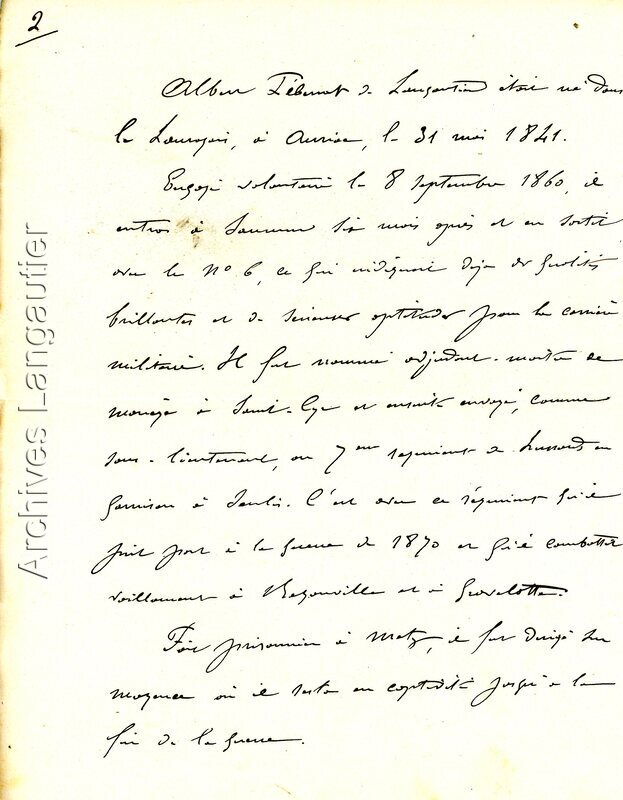 2
Albert Pébernat de Langautier était né dans
le Lauragais, à Auriac, le 31 mai 1841.
Engagé volontaire le 8 septembre 1860, il
entrait à Saumur six mois après et en sortit
avec le No 6, ce qui indiquait déjà des qualités
brillantes et de sérieuses aptitudes pour la carrière
militaire. Il fut nommé adjudant-maître de
manège à Saint-Cyr et ensuite envoyé, comme
sous-lieutenant, au 7eme régiment de hussards en
garnison à Senlis. C'est avec ce régiment qu'il
prit part à la guerre de 1870 et qu'il combattit
vaillamment à Rezonville et à Gravelotte.
Fait prisonnier à Metz, il fut dirigé sur
Mayence où il resta en captivité jusqu'à la
fin de la guerre.
Archives Langautier